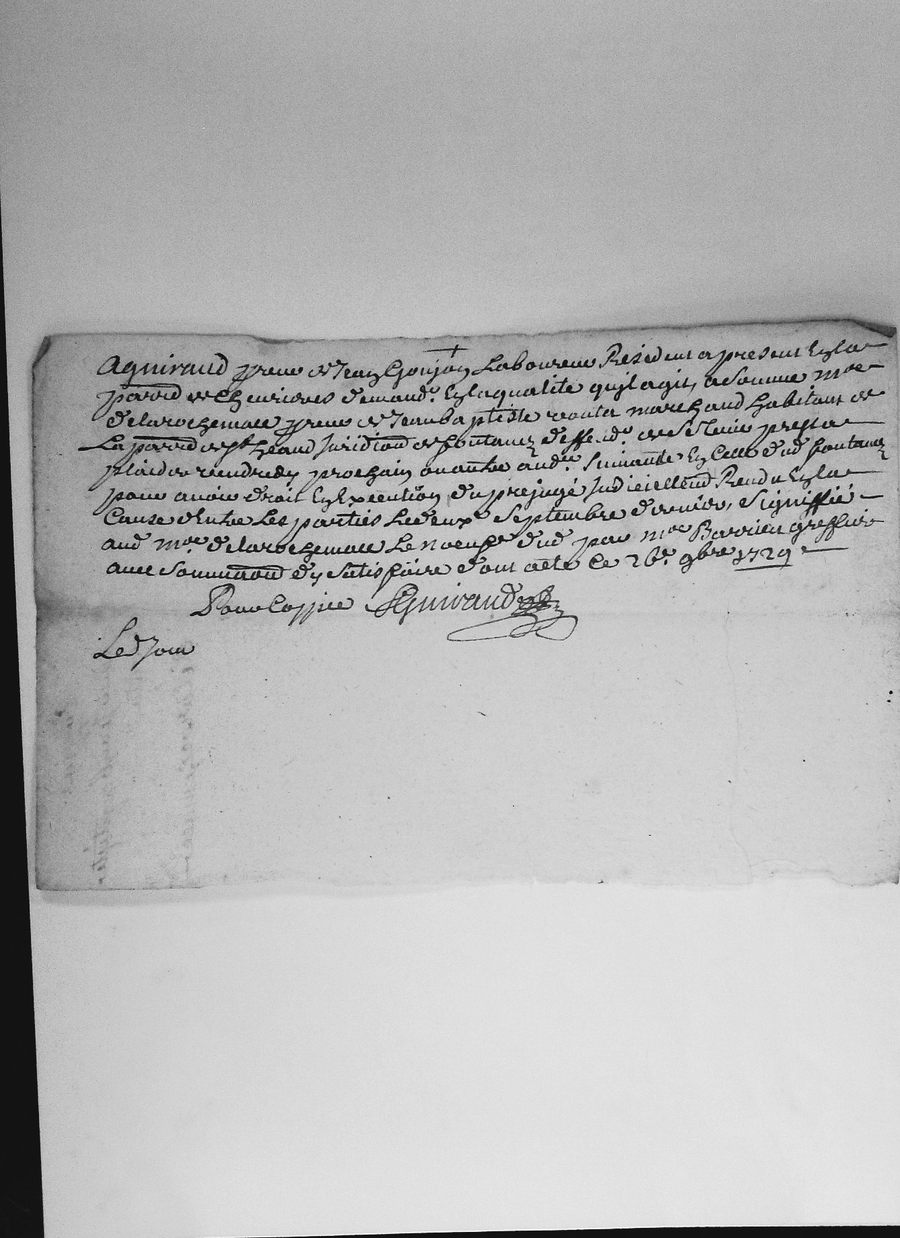 +
Aguiraud preur de Jean Goujon Laboureur Résident apresent En la
parr̃d de Chevrieres demandr. En la qualité quil agit, a Sommé Me
delarochemace preur de Jean baptiste marchand habitant de
La parr̃d de St heand Juridion de fontanez deffendr. de Se Tenir prest a
plaider vendredy prochain, ou autre audce Suivante En Celle dud fontanez
pour avoir droit En Execution du préjugé Judiciellemt Rendu En la
Cause d'entre Les parties Le deuxe Septembre dernier, Signiffié
aud Me. delarochemace Le neufe dud par Me Barrieu greffier
avec Sommaon dy Satisfaire dont acte Ce 26e. 9bre 1729
Pour Coppiee AGuiraud
Led Jour